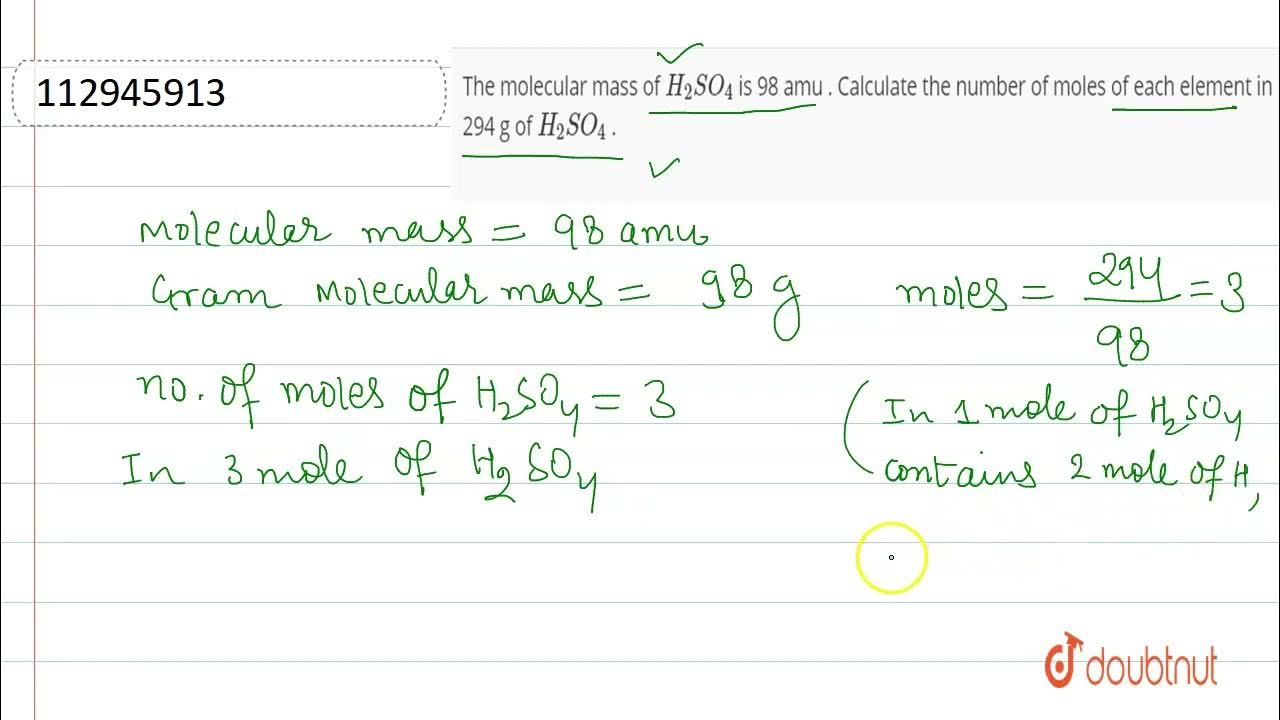 112945913
The molecular mass of H₂SO₄ is 98 amu . Calculate the number of moles of each element in
294 g of H₂SO₄ .
Molecular mass = 98 amu
Gram Molecular mass = 98 g
moles = 294/98 = 3
no. of moles of H₂SO₄ = 3
In 3 mole of H₂SO₄
(In 1 mole of H₂SO₄
contains 2 mole of H,
doubtnut